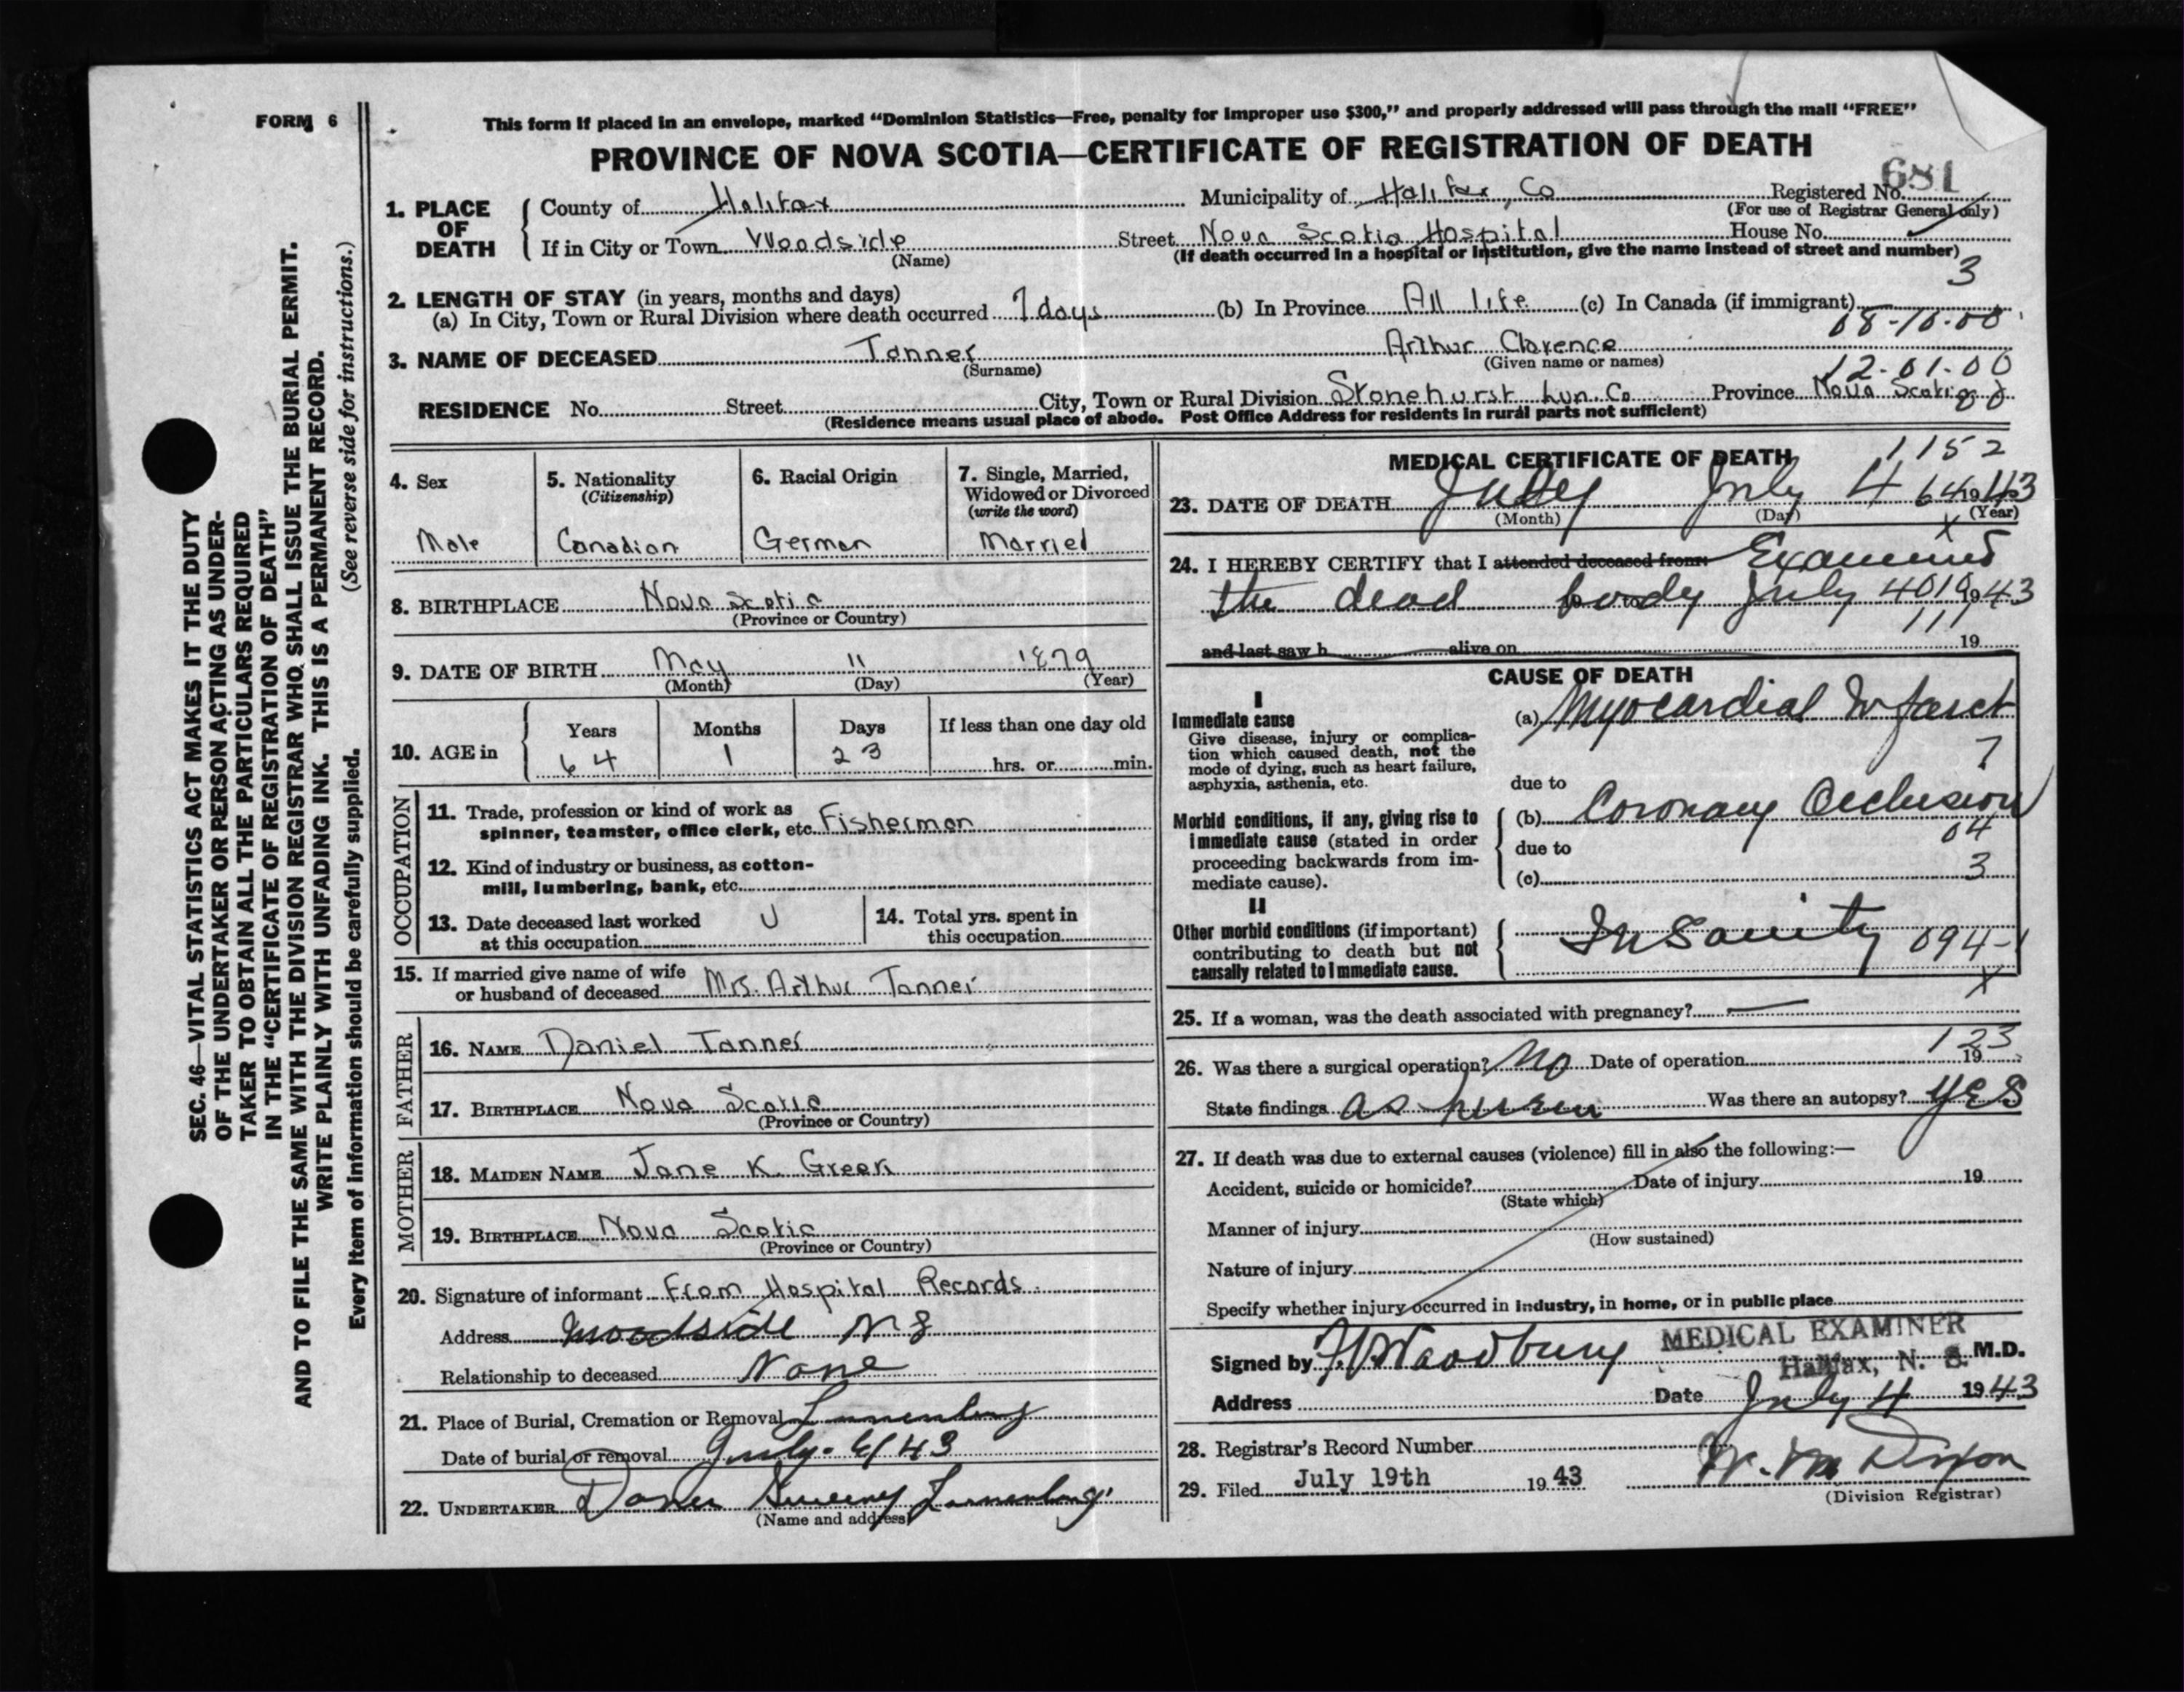 FORM 6
This form if placed in an envelope, marked “Dominion Statistics—Free, penalty for improper use $300,” and properly addressed will pass through the mail “FREE”
PROVINCE OF NOVA SCOTIA—CERTIFICATE OF REGISTRATION OF DEATH
681
1. PLACE OF DEATH
County of Halifax Municipality of Halifax, Co Registered No.
(For use of Registrar General only)
If in City or Town Woodside Street Nova Scotia Hospital House No.
(Name) (If death occurred in a hospital or institution, give the name instead of street and number)
3
2. LENGTH OF STAY (in years, months and days)
(a) In City, Town or Rural Division where death occurred 7 days (b) In Province All life (c) In Canada (if immigrant) —
08-10-00
3. NAME OF DECEASED Tanner Arthur Clarence
(Surname) (Given name or names)
12-01-00
RESIDENCE No. Street City, Town or Rural Division Stonehurst Lun. Co. Province Nova Scotia
(Residence means usual place of abode. Post Office Address for residents in rural parts not sufficient)
4. Sex
Male
5. Nationality
(Citizenship)
Canadian
6. Racial Origin
German
7. Single, Married,
Widowed or Divorced
(write the word)
Married
8. BIRTHPLACE Nova Scotia
(Province or Country)
9. DATE OF BIRTH May 11 1879
(Month) (Day) (Year)
10. AGE in
Years Months Days If less than one day old
64 1 23 hrs. or min.
OCCUPATION
11. Trade, profession or kind of work as
spinner, teamster, office clerk, etc. Fisherman
12. Kind of industry or business, as cotton-
mill, lumbering, bank, etc.
13. Date deceased last worked U
at this occupation
14. Total yrs. spent in
this occupation
15. If married give name of wife
or husband of deceased Mrs. Arthur Tanner
FATHER
16. NAME Daniel Tanner
17. BIRTHPLACE Nova Scotia
(Province or Country)
MOTHER
18. MAIDEN NAME Jane K. Greek
19. BIRTHPLACE Nova Scotia
(Province or Country)
20. Signature of informant From Hospital Records
Address Woodside N S
Relationship to deceased None
21. Place of Burial, Cremation or Removal Lunenburg
Date of burial or removal July 6/43
22. UNDERTAKER Sweeny Lunenburg
(Name and address)
MEDICAL CERTIFICATE OF DEATH
1152
23. DATE OF DEATH July July 4 64 1943
(Month) (Day) (Year)
x
24. I HEREBY CERTIFY that I attended deceased from: Examined
the dead body July 4 019 1943
111
and last saw h alive on 19
CAUSE OF DEATH
I
Immediate cause
Give disease, injury or complica-
tion which caused death, not the
mode of dying, such as heart failure,
asphyxia, asthenia, etc.
(a) Myocardial Infarct
7
due to
Morbid conditions, if any, giving rise to
immediate cause (stated in order
proceeding backwards from im-
mediate cause).
(b) Coronary Occlusion
04
due to
(c) 3
II
Other morbid conditions (if important)
contributing to death but not
causally related to immediate cause.
Insanity 094-1
x
25. If a woman, was the death associated with pregnancy? —
123
26. Was there a surgical operation? No Date of operation 19
State findings as Was there an autopsy? YES
27. If death was due to external causes (violence) fill in also the following:—
Accident, suicide or homicide? Date of injury 19
(State which)
Manner of injury
(How sustained)
Nature of injury
Specify whether injury occurred in industry, in home, or in public place
MEDICAL EXAMINER
Signed by Woodbury Halifax, N. S. M.D.
Address Date July 4 1943
28. Registrar's Record Number
29. Filed July 19th 1943 W. M. Dixon
(Division Registrar)
SEC. 46—VITAL STATISTICS ACT MAKES IT THE DUTY
OF THE UNDERTAKER OR PERSON ACTING AS UNDER-
TAKER TO OBTAIN ALL THE PARTICULARS REQUIRED
IN THE “CERTIFICATE OF REGISTRATION OF DEATH”
AND TO FILE THE SAME WITH THE DIVISION REGISTRAR WHO SHALL ISSUE THE BURIAL PERMIT.
WRITE PLAINLY WITH UNFADING INK. THIS IS A PERMANENT RECORD.
(See reverse side for instructions.)
Every item of information should be carefully supplied.